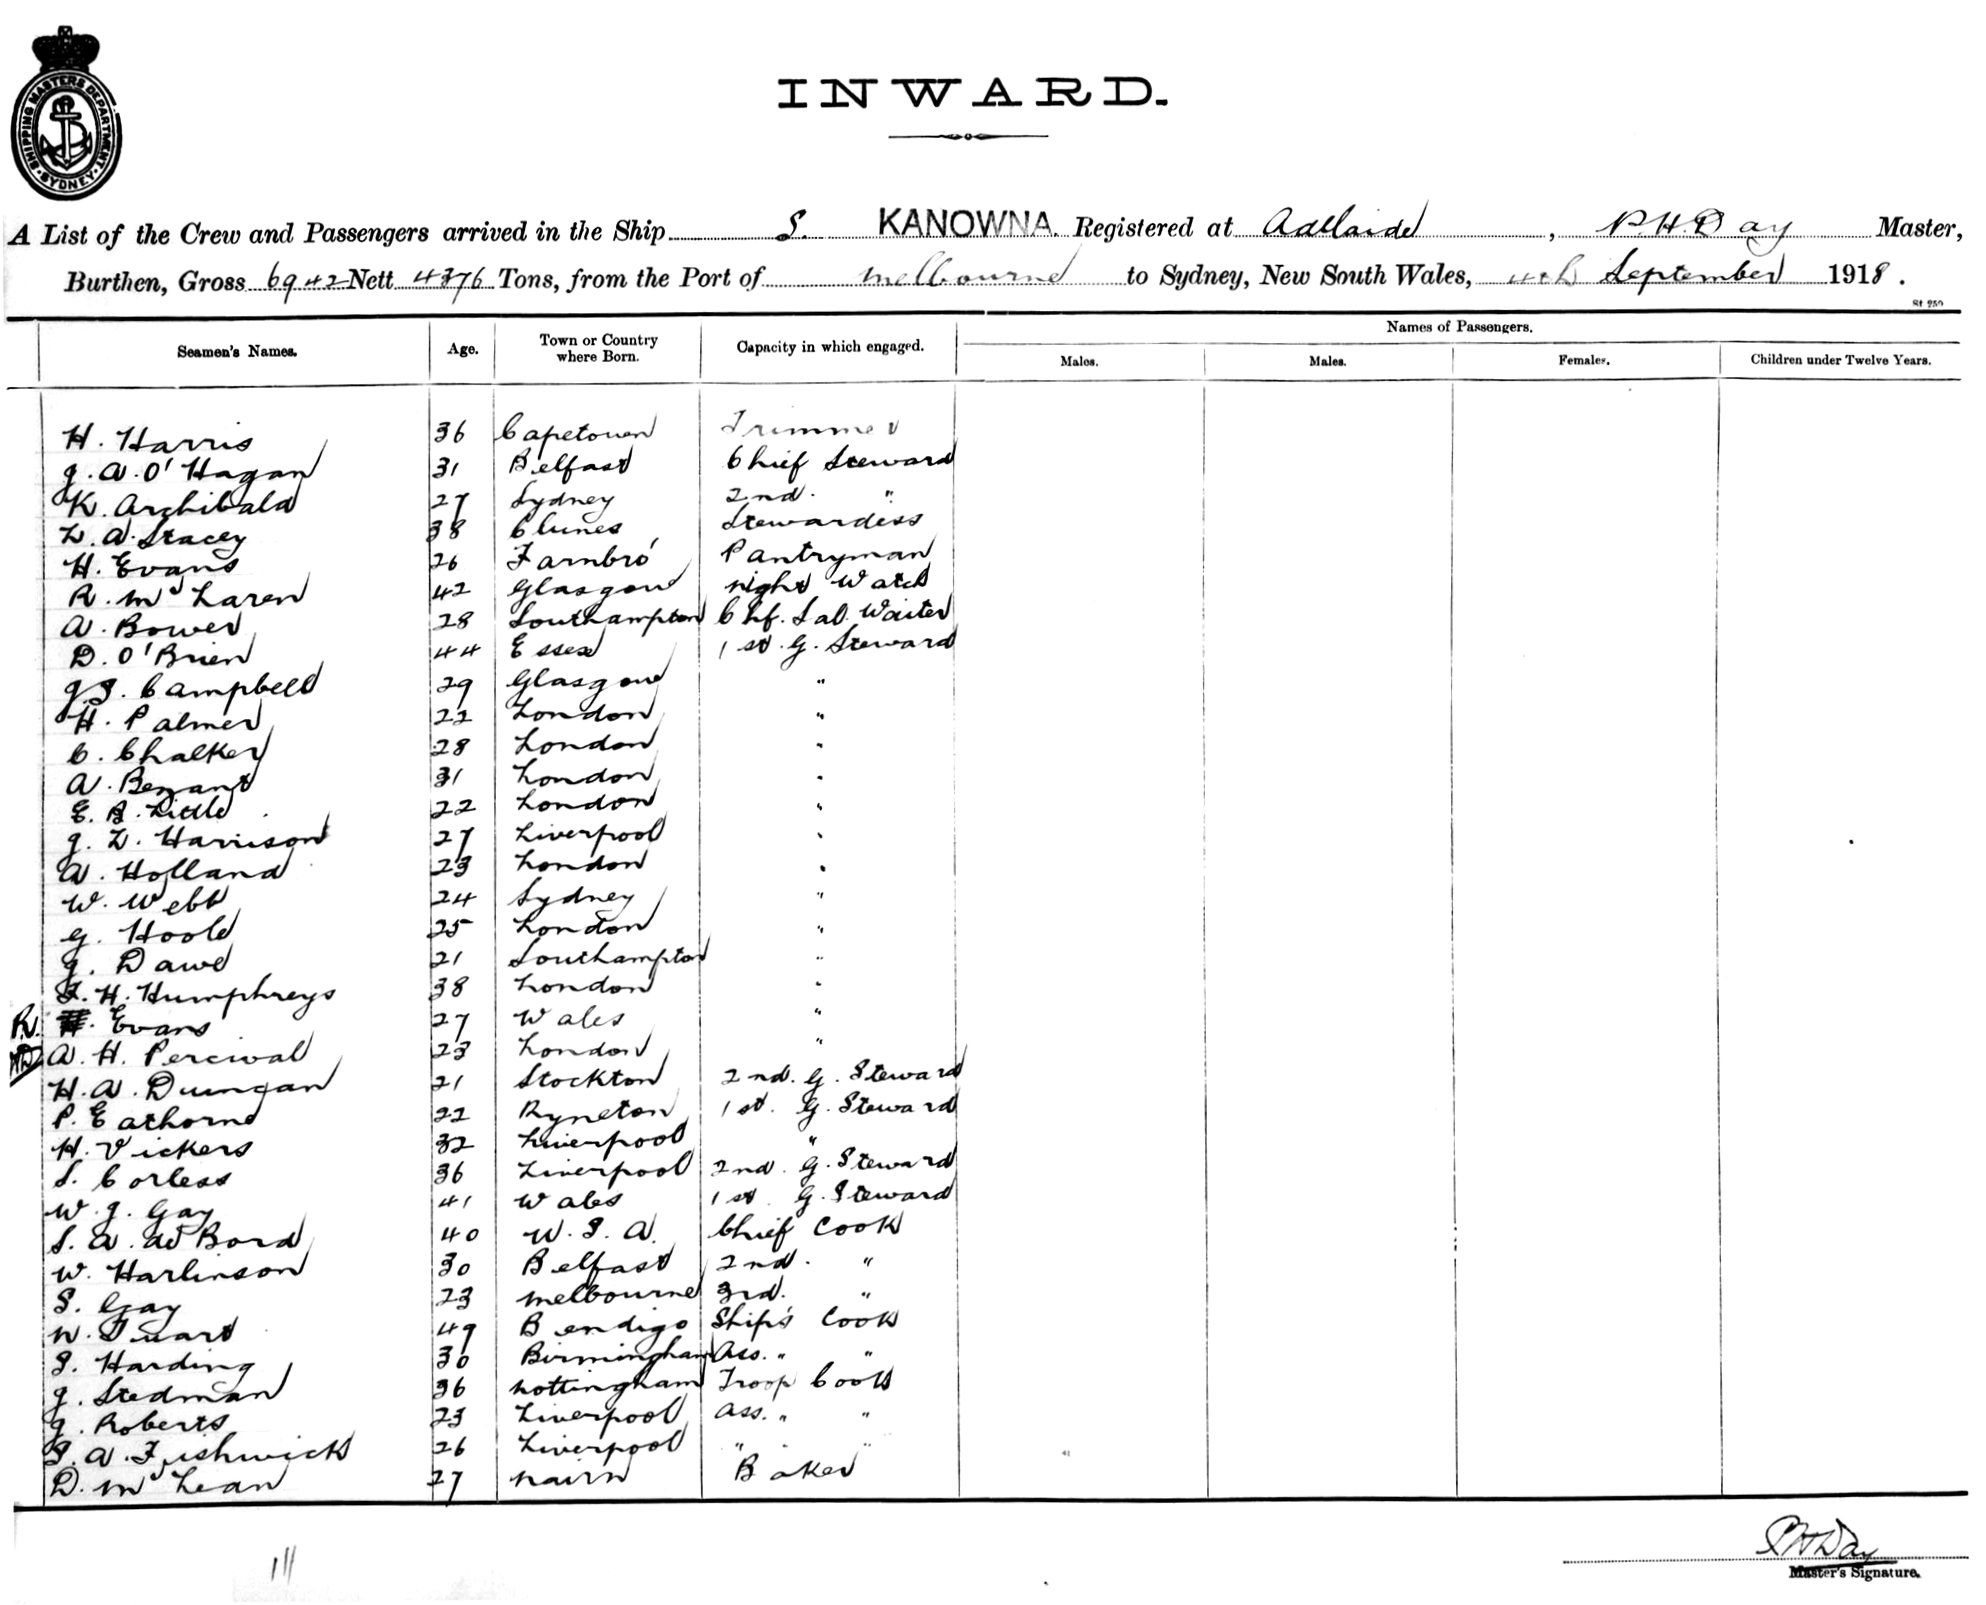 SHIPPING MASTERS DEPARTMENT
SYDNEY
INWARD.
A List of the Crew and Passengers arrived in the Ship S. KANOWNA. Registered at Adelaide, P. H. Day Master,
Burthen, Gross 6942 Nett 4376 Tons, from the Port of Melbourne to Sydney, New South Wales, 4th September 1918.
St 250
Seamen's Names. Age. Town or Country where Born. Capacity in which engaged. Names of Passengers.
Males. Males. Females. Children under Twelve Years.
H. Harris 36 Capetown Trimmer
J. A. O'Hagan 31 Belfast Chief Steward
K. Archibald 27 Sydney 2nd. "
L. A. Stacey 38 Clunes Stewardess
H. Evans 26 Farnbro' Pantryman
R. McLaren 42 Glasgow Night Watch
A. Bower 28 Southampton Chf. Sal. Waiter
D. O'Brien 44 Essex 1st. G. Steward
J. S. Campbell 29 Glasgow "
H. Palmer 22 London "
C. Chalker 28 London "
A. Bezant 31 London "
E. B. Little 22 London "
J. L. Harrison 27 Liverpool "
A. Holland 23 London "
W. Webb 24 Sydney "
G. Hoole 25 London "
J. Dawe 21 Southampton "
F. H. Humphreys 38 London "
R. Evans 27 Wales "
A. H. Percival 23 London "
H. A. Dungan 21 Stockton 2nd. G. Steward
P. Eathorne 22 Kyneton 1st. G. Steward
H. Vickers 32 Liverpool "
S. Corless 36 Liverpool 2nd. G. Steward
W. J. Gay 41 Wales 1st. G. Steward
S. A. de Bord 40 U. S. A. Chief Cook
W. Harlinson 30 Belfast 2nd. "
S. Gay 23 Melbourne 3rd. "
W. Ewart 49 Bendigo Ship's Cook
S. Harding 30 Birmingham Ass. " "
J. Stedman 36 Nottingham Troop Cook
J. Roberts 23 Liverpool Ass. " "
S. A. Fishwick 26 Liverpool " "
D. McLean 27 Nairn Baker
P H Day
Master's Signature.